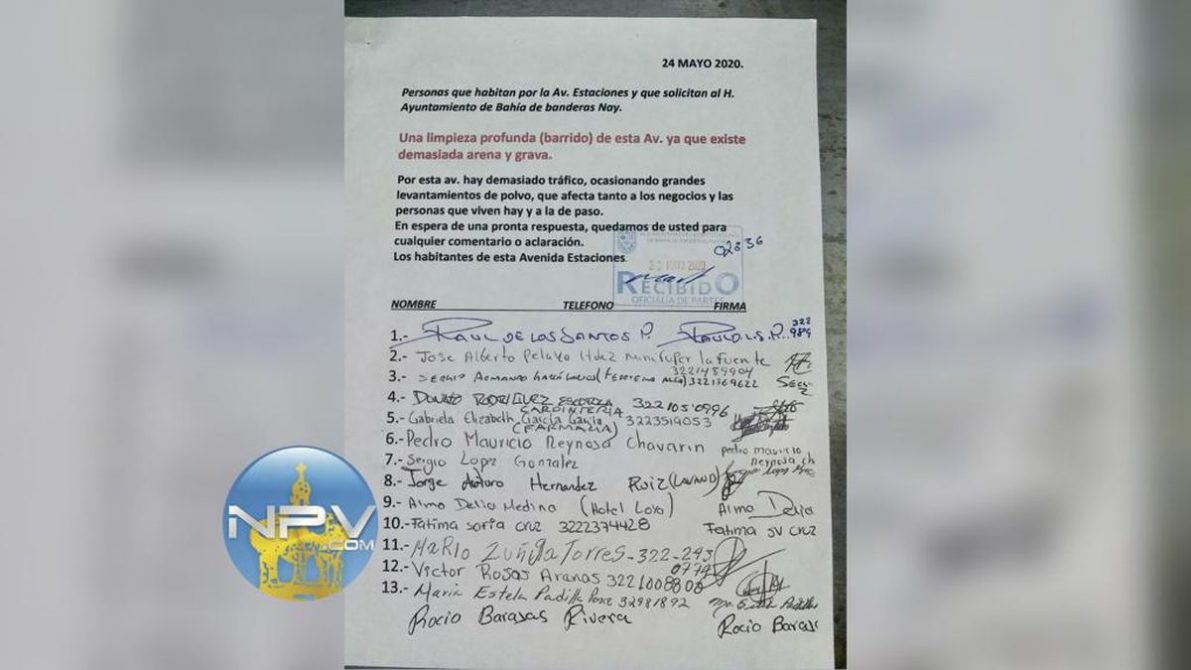 24 MAYO 2020.
Personas que habitan por la Av. Estaciones y que solicitan al H.
Ayuntamiento de Bahía de banderas Nay.
Una limpieza profunda (barrido) de esta Av. ya que existe
demasiada arena y grava.
Por esta av. hay demasiado tráfico, ocasionando grandes
levantamientos de polvo, que afecta tanto a los negocios y las
personas que viven hay y a la de paso.
En espera de una pronta respuesta, quedamos de usted para
cualquier comentario o aclaración.
Los habitantes de esta Avenida Estaciones.
02836
RECIBIDO
OFICIALIA DE PARTES
NOMBRE TELEFONO FIRMA
1.- RAUL DE LOS SANTOS P. 322
2.- Jose Alberto Pelayo Hdez minisuper la fuente
3.- Sergio Armando 3221489904
3221369622
4.- RODRIGUEZ 3221050996
CARPINTERIA
5.- Gabriela Elizabeth García García 3223519053
(FARMACIA)
6.- Pedro Mauricio Reynosa Chavarin pedro mauricio
reynosa ch
7.- Sergio Lopez Gonzalez
8.- Jorge Arturo Hernandez Ruiz
9.- Alma Delia Medina (Hotel Loro) Alma Delia
10.- Fatima soria cruz 3222374428 Fatima SV CRUZ
11.- MARIO ZUÑIGA TORRES-322-293
0774
12.- Victor Rosas Aranas 3221008808
13.- Maria Estela Padilla 32981892
Rocio Barajas Rivera Rocio Baraja
NPV
.COM